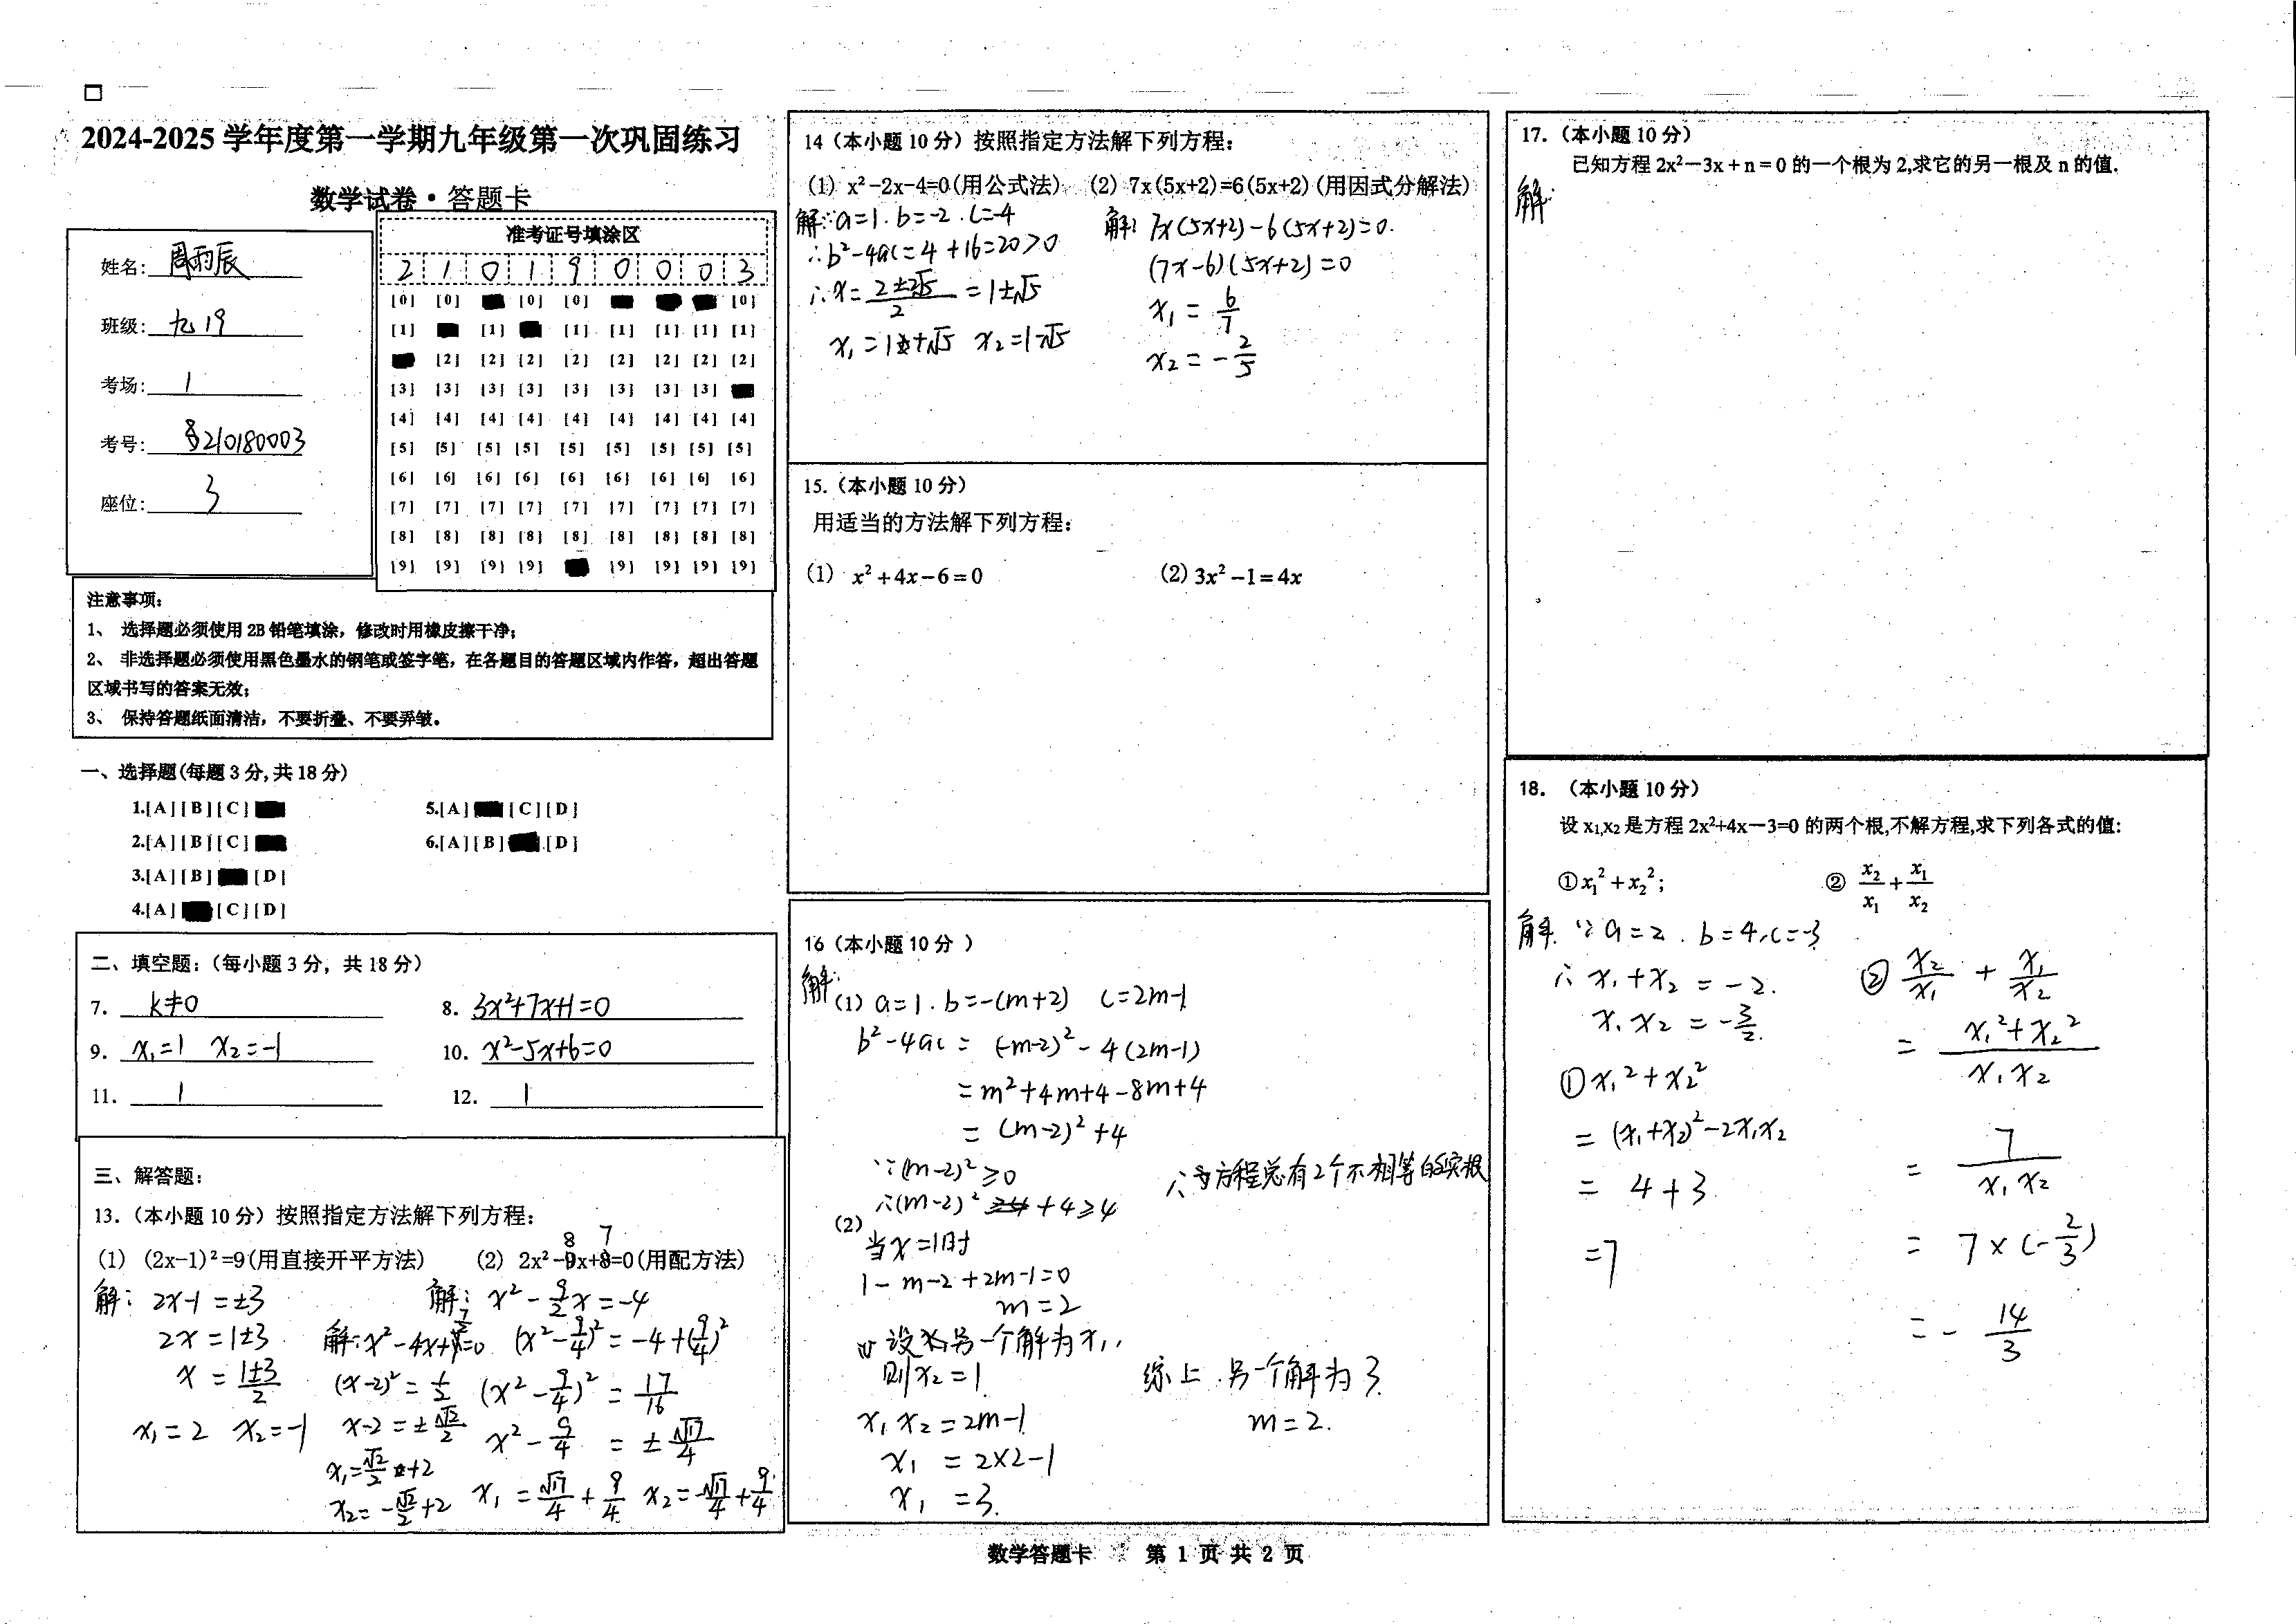 2024-2025学年度第一学期九年级第一次巩固练习
数学试卷·答题卡
姓名:周雨辰
班级:九19
考场:1
考号:210180003
座位:3
准考证号填涂区
2 1 0 1 9 0 0 0 3
[0] [0] [0] [0] [0]
[1] [1] [1] [1] [1] [1] [1]
[2] [2] [2] [2] [2] [2] [2] [2]
[3] [3] [3] [3] [3] [3] [3] [3]
[4] [4] [4] [4] [4] [4] [4] [4] [4]
[5] [5] [5] [5] [5] [5] [5] [5] [5]
[6] [6] [6] [6] [6] [6] [6] [6] [6]
[7] [7] [7] [7] [7] [7] [7] [7] [7]
[8] [8] [8] [8] [8] [8] [8] [8] [8]
[9] [9] [9] [9] [9] [9] [9] [9]
注意事项:
1、 选择题必须使用2B铅笔填涂,修改时用橡皮擦干净;
2、 非选择题必须使用黑色墨水的钢笔或签字笔,在各题目的答题区域内作答,超出答题
区域书写的答案无效;
3、 保持答题纸面清洁,不要折叠、不要弄皱。
一、选择题(每题3分,共18分)
1.[A][B][C] 5.[A] [C][D]
2.[A][B][C] 6.[A][B] [D]
3.[A][B] [D]
4.[A] [C][D]
二、填空题:(每小题3分,共18分)
7. k≠0 8. 3x²+7x+1=0
9. x₁=1 x₂=-1 10. x²-5x+6=0
11. 1 12. 1
三、解答题:
13.(本小题10分)按照指定方法解下列方程:
8 7
(1) (2x-1)²=9(用直接开平方法) (2) 2x²-9x+8=0(用配方法)
解: 2x-1=±3
2x=1±3
x=(1±3)/2
x₁=2 x₂=-1
解: x²-4x+7/2=0
(x-2)²=1/2
x-2=±√2/2
x₁=√2/2+2
x₂=-√2/2+2
解: x²-9/2x=-4
(x²-9/4)²=-4+(9/4)²
(x²-9/4)²=17/16
x²-9/4=±√17/4
x₁=√17/4+9/4 x₂=-√17/4+9/4
14(本小题10分)按照指定方法解下列方程:
(1) x²-2x-4=0(用公式法) (2) 7x(5x+2)=6(5x+2)(用因式分解法)
解:∵a=1.b=-2.c=-4
∴b²-4ac=4+16=20>0
∴x=(2±2√5)/2=1±√5
x₁=1+√5 x₂=1-√5
解: 7x(5x+2)-6(5x+2)=0.
(7x-6)(5x+2)=0
x₁=6/7
x₂=-2/5
15.(本小题10分)
用适当的方法解下列方程:
(1) x²+4x-6=0 (2) 3x²-1=4x
16(本小题10分 )
解:
(1) a=1.b=-(m+2) c=2m-1
b²-4ac=(-m-2)²-4(2m-1)
=m²+4m+4-8m+4
=(m-2)²+4
∵(m-2)²≥0
∴(m-2)²+4≥4
∴方程总有2个不相等的实根
(2)
当x=1时
1-m-2+2m-1=0
m=2
设另一个解为x₁,
则x₂=1
x₁x₂=2m-1
x₁=2×2-1
x₁=3.
综上.另一个解为3.
m=2.
17.(本小题10分)
已知方程2x²-3x+n=0的一个根为2,求它的另一根及n的值.
解:
18. (本小题10分)
设x₁,x₂是方程2x²+4x-3=0的两个根,不解方程,求下列各式的值:
①x₁²+x₂²; ② x₂/x₁+x₁/x₂
解. ∵a=2.b=4,c=-3
∴x₁+x₂=-2.
x₁x₂=-3/2.
①x₁²+x₂²
=(x₁+x₂)²-2x₁x₂
=4+3
=7
② x₂/x₁+x₁/x₂
=(x₁²+x₂²)/(x₁x₂)
=7/(x₁x₂)
=7×(-2/3)
=-14/3
数学答题卡 第 1 页 共 2 页